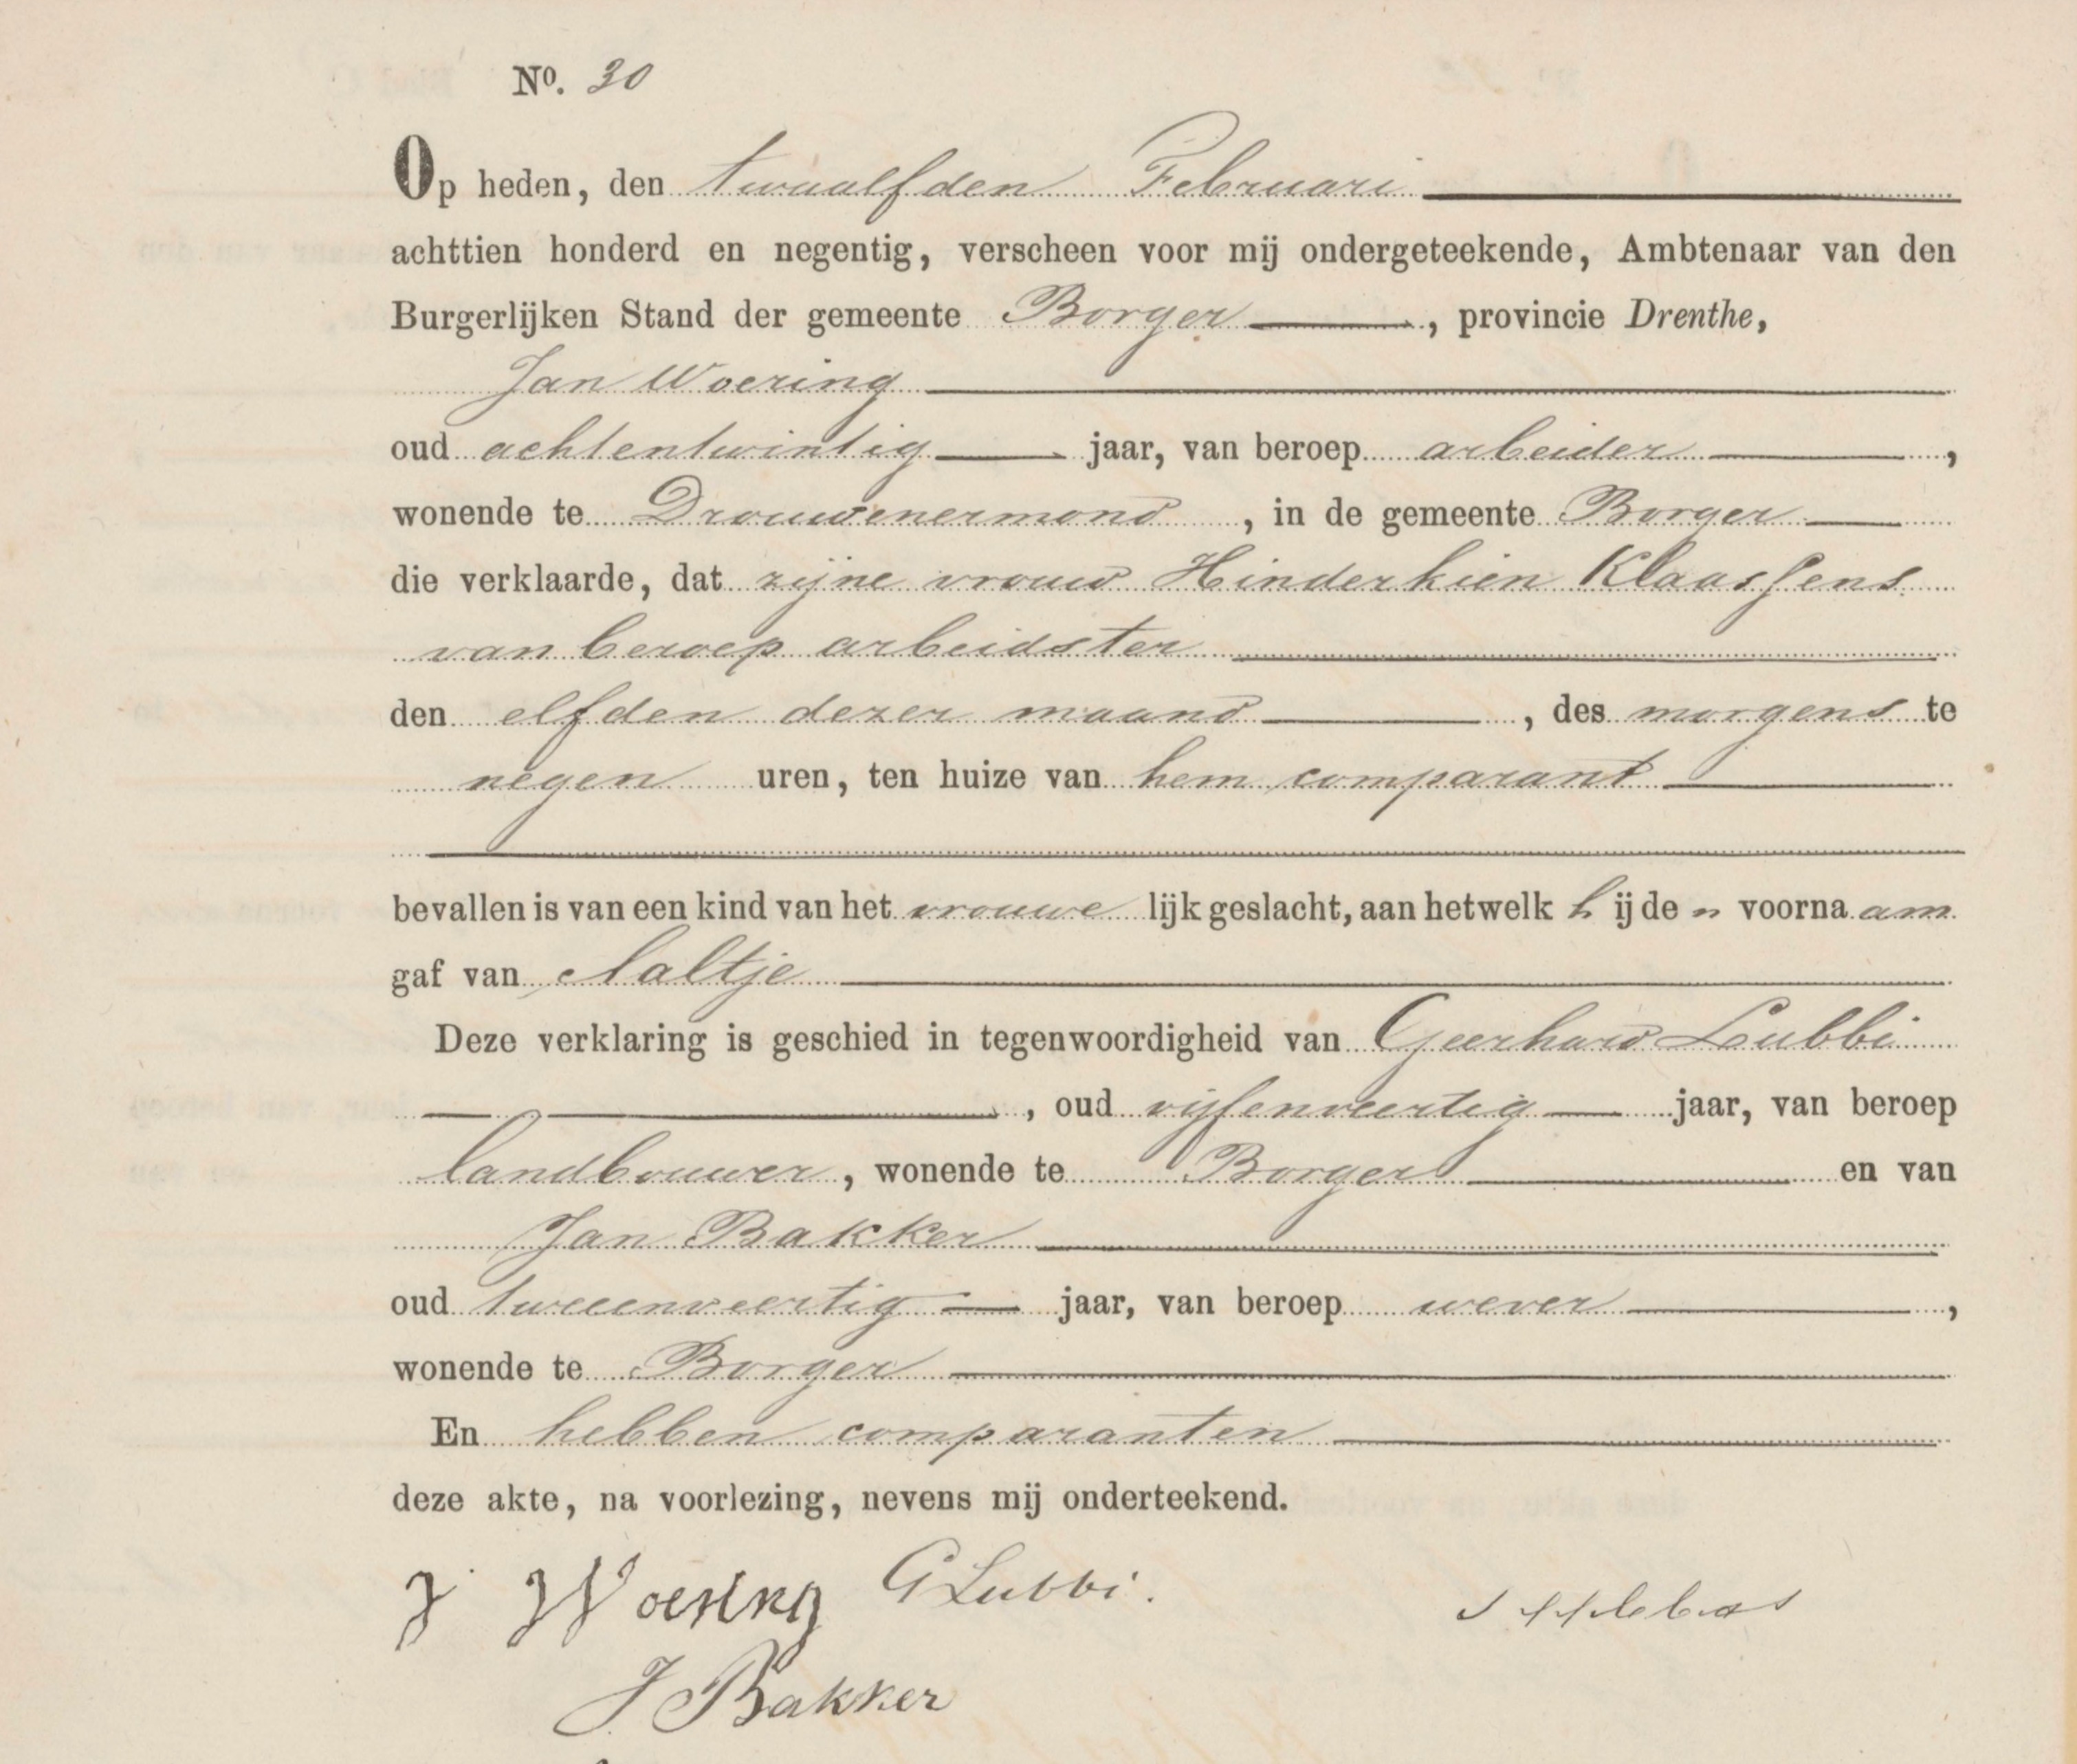 No. 30
Op heden, den twaalfden Februari
achttien honderd en negentig, verscheen voor mij ondergeteekende, Ambtenaar van den
Burgerlijken Stand der gemeente Borger, provincie Drenthe,
Jan Woering
oud achtentwintig jaar, van beroep arbeider,
wonende te Drouwenermond, in de gemeente Borger
die verklaarde, dat zijne vrouw Hinderkien Klaassens
van beroep arbeidster
den elfden dezer maand, des morgens te
negen uren, ten huize van hem comparant
bevallen is van een kind van het vrouwelijk geslacht, aan hetwelk hij den voornaam
gaf van Aaltje
Deze verklaring is geschied in tegenwoordigheid van Geerhard Lubbi
, oud vijfenveertig jaar, van beroep
landbouwer, wonende te Borger en van
Jan Bakker
oud tweeenveertig jaar, van beroep wever,
wonende te Borger
En hebben comparanten
deze akte, na voorlezing, nevens mij onderteekend.
J Woering GLubbi.
J Bakker